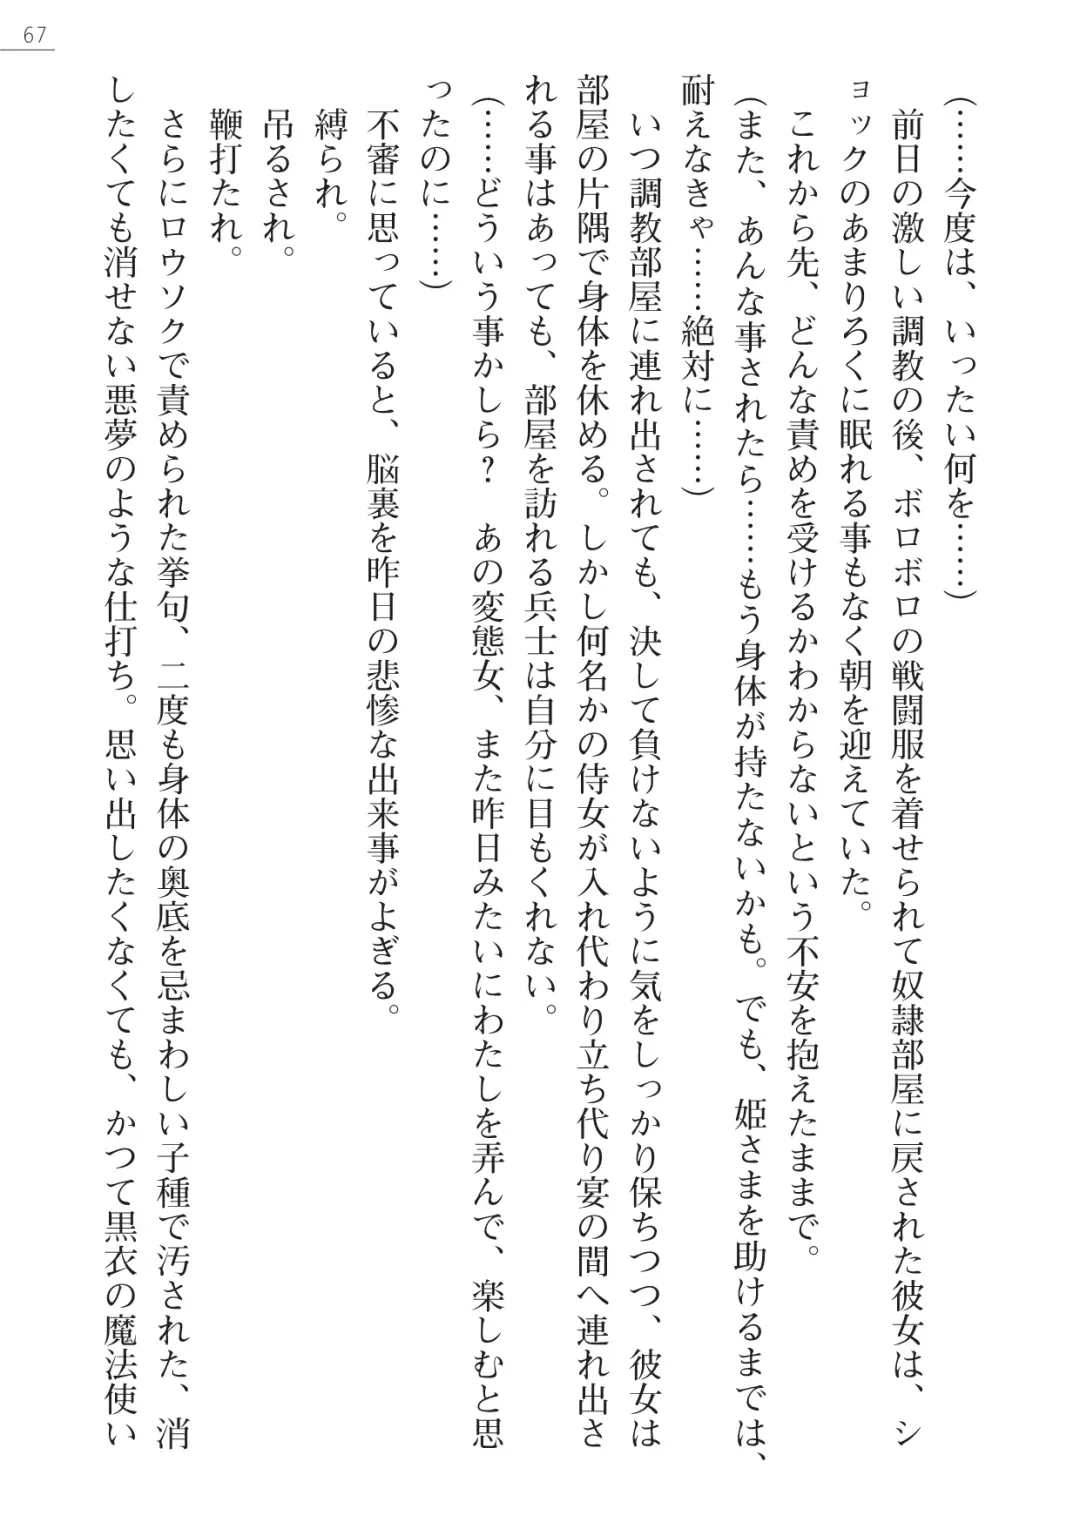 67
(……今度は、いったい何を……)
前日の激しい調教の後、ボロボロの戦闘服を着せられて奴隷部屋に戻された彼女は、シ
ョックのあまりろくに眠れる事もなく朝を迎えていた。
これから先、どんな責めを受けるかわからないという不安を抱えたままで。
(また、あんな事されたら……もう身体が持たないかも。でも、姫さまを助けるまでは、
耐えなきゃ……絶対に……)
いつ調教部屋に連れ出されても、決して負けないように気をしっかり保ちつつ、彼女は
部屋の片隅で身体を休める。しかし何名かの侍女が入れ代わり立ち代り宴の間へ連れ出さ
れる事はあっても、部屋を訪れる兵士は自分に目もくれない。
(……どういう事かしら? あの変態女、また昨日みたいにわたしを弄んで、楽しむと思
ったのに……)
不審に思っていると、脳裏を昨日の悲惨な出来事がよぎる。
縛られ。
吊るされ。
鞭打たれ。
さらにロウソクで責められた挙句、二度も身体の奥底を忌まわしい子種で汚された、消
したくても消せない悪夢のような仕打ち。思い出したくなくても、かつて黒衣の魔法使い